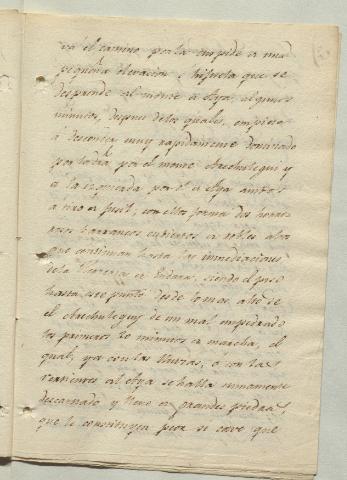 va el camino por la cuspide a una
pequeña elevacion o hijuela que se
desprende al monte a Aya, algunos
minutos, despues de los quales, empieza
a descender muy rapidamente dominado
por la dra por el monte Arechulegui y
a la izquierda por el a Aya ambos
a tiro a fusil; con ellos forma dos horro
rosos barrancos cubiertos a robles altos
que continuan hasta las inmediaciones
de la Herreria a
hasta este punto desde lo mas alto de
el Arechuleguy de un mal empedrado
los primeros 20 minutos a marcha, el
qual, ya con las lluvias, o con las
vertientes al Aya se halla sumamente
descarnado y lleno a grandes piedras,
que le constituyen peor si cave que